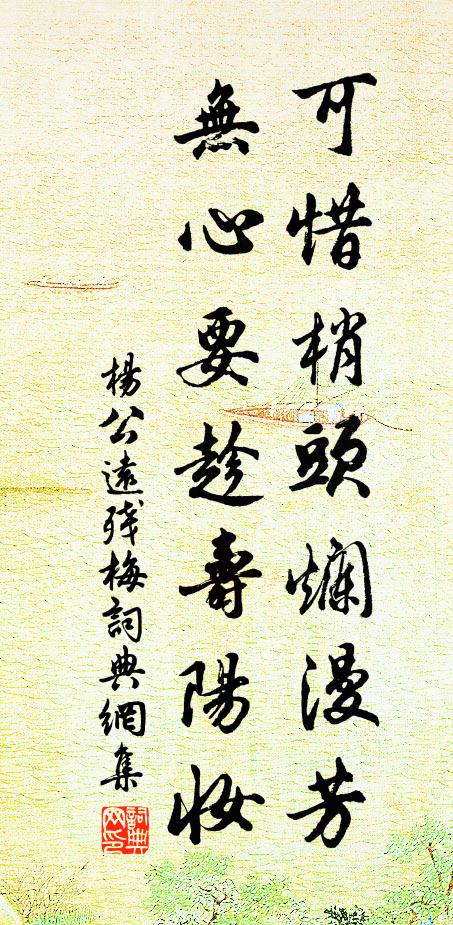 可惜梢頭爛漫芳
無心要趁壽陽妝
楊公遠殘梅詞典網集
詞典网印